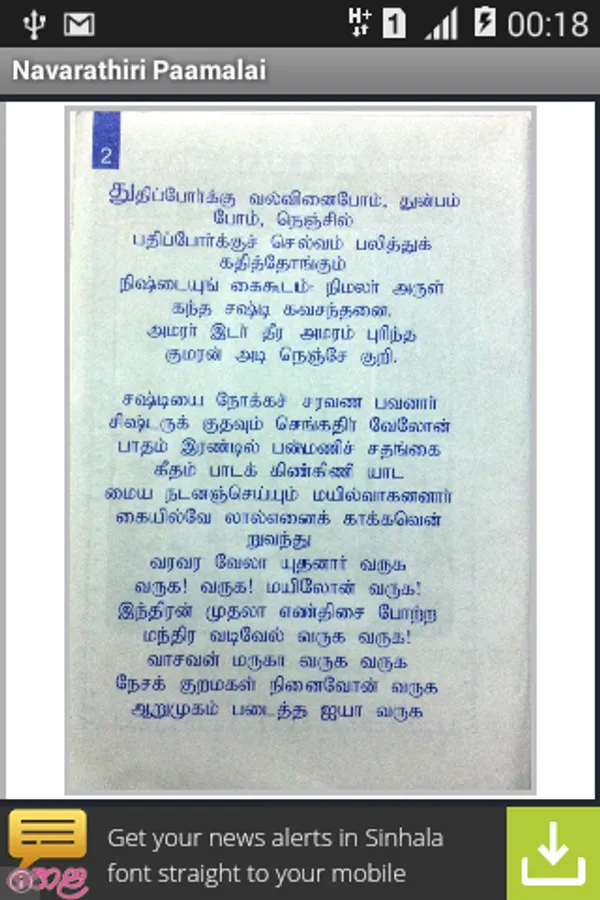 00:18
Navarathiri Paamalai
2
துதிப்போர்க்கு வல்வினைபோம், துன்பம்
போம், நெஞ்சில்
பதிப்போர்க்குச் செல்வம் பலித்துக்
கதித்தோங்கும்
நிஷ்டையுங் கைகூடம்- நிமலர் அருள்
கந்த சஷ்டி கவசந்தனை.
அமரர் இடர் தீர அமரம் புரிந்த
குமரன் அடி நெஞ்சே குறி.
சஷ்டியை நோக்கச் சரவண பவனார்
சிஷ்டருக் குதவும் செங்கதிர் வேலோன்
பாதம் இரண்டில் பண்மணிச் சதங்கை
கீதம் பாடக் கிண்கிணி யாட
மைய நடனஞ்செய்யும் மயில்வாகனனார்
கையில்வே லால்எனைக் காக்கவென்
றுவந்து
வரவர வேலா யுதனார் வருக
வருக! வருக! மயிலோன் வருக!
இந்திரன் முதலா எண்திசை போற்ற
மந்திர வடிவேல் வருக வருக!
வாசவன் மருகா வருக வருக
நேசக் குறமகள் நினைவோன் வருக
ஆறுமுகம் படைத்த ஐயா வருக
Get your news alerts in Sinhala
font straight to your mobile